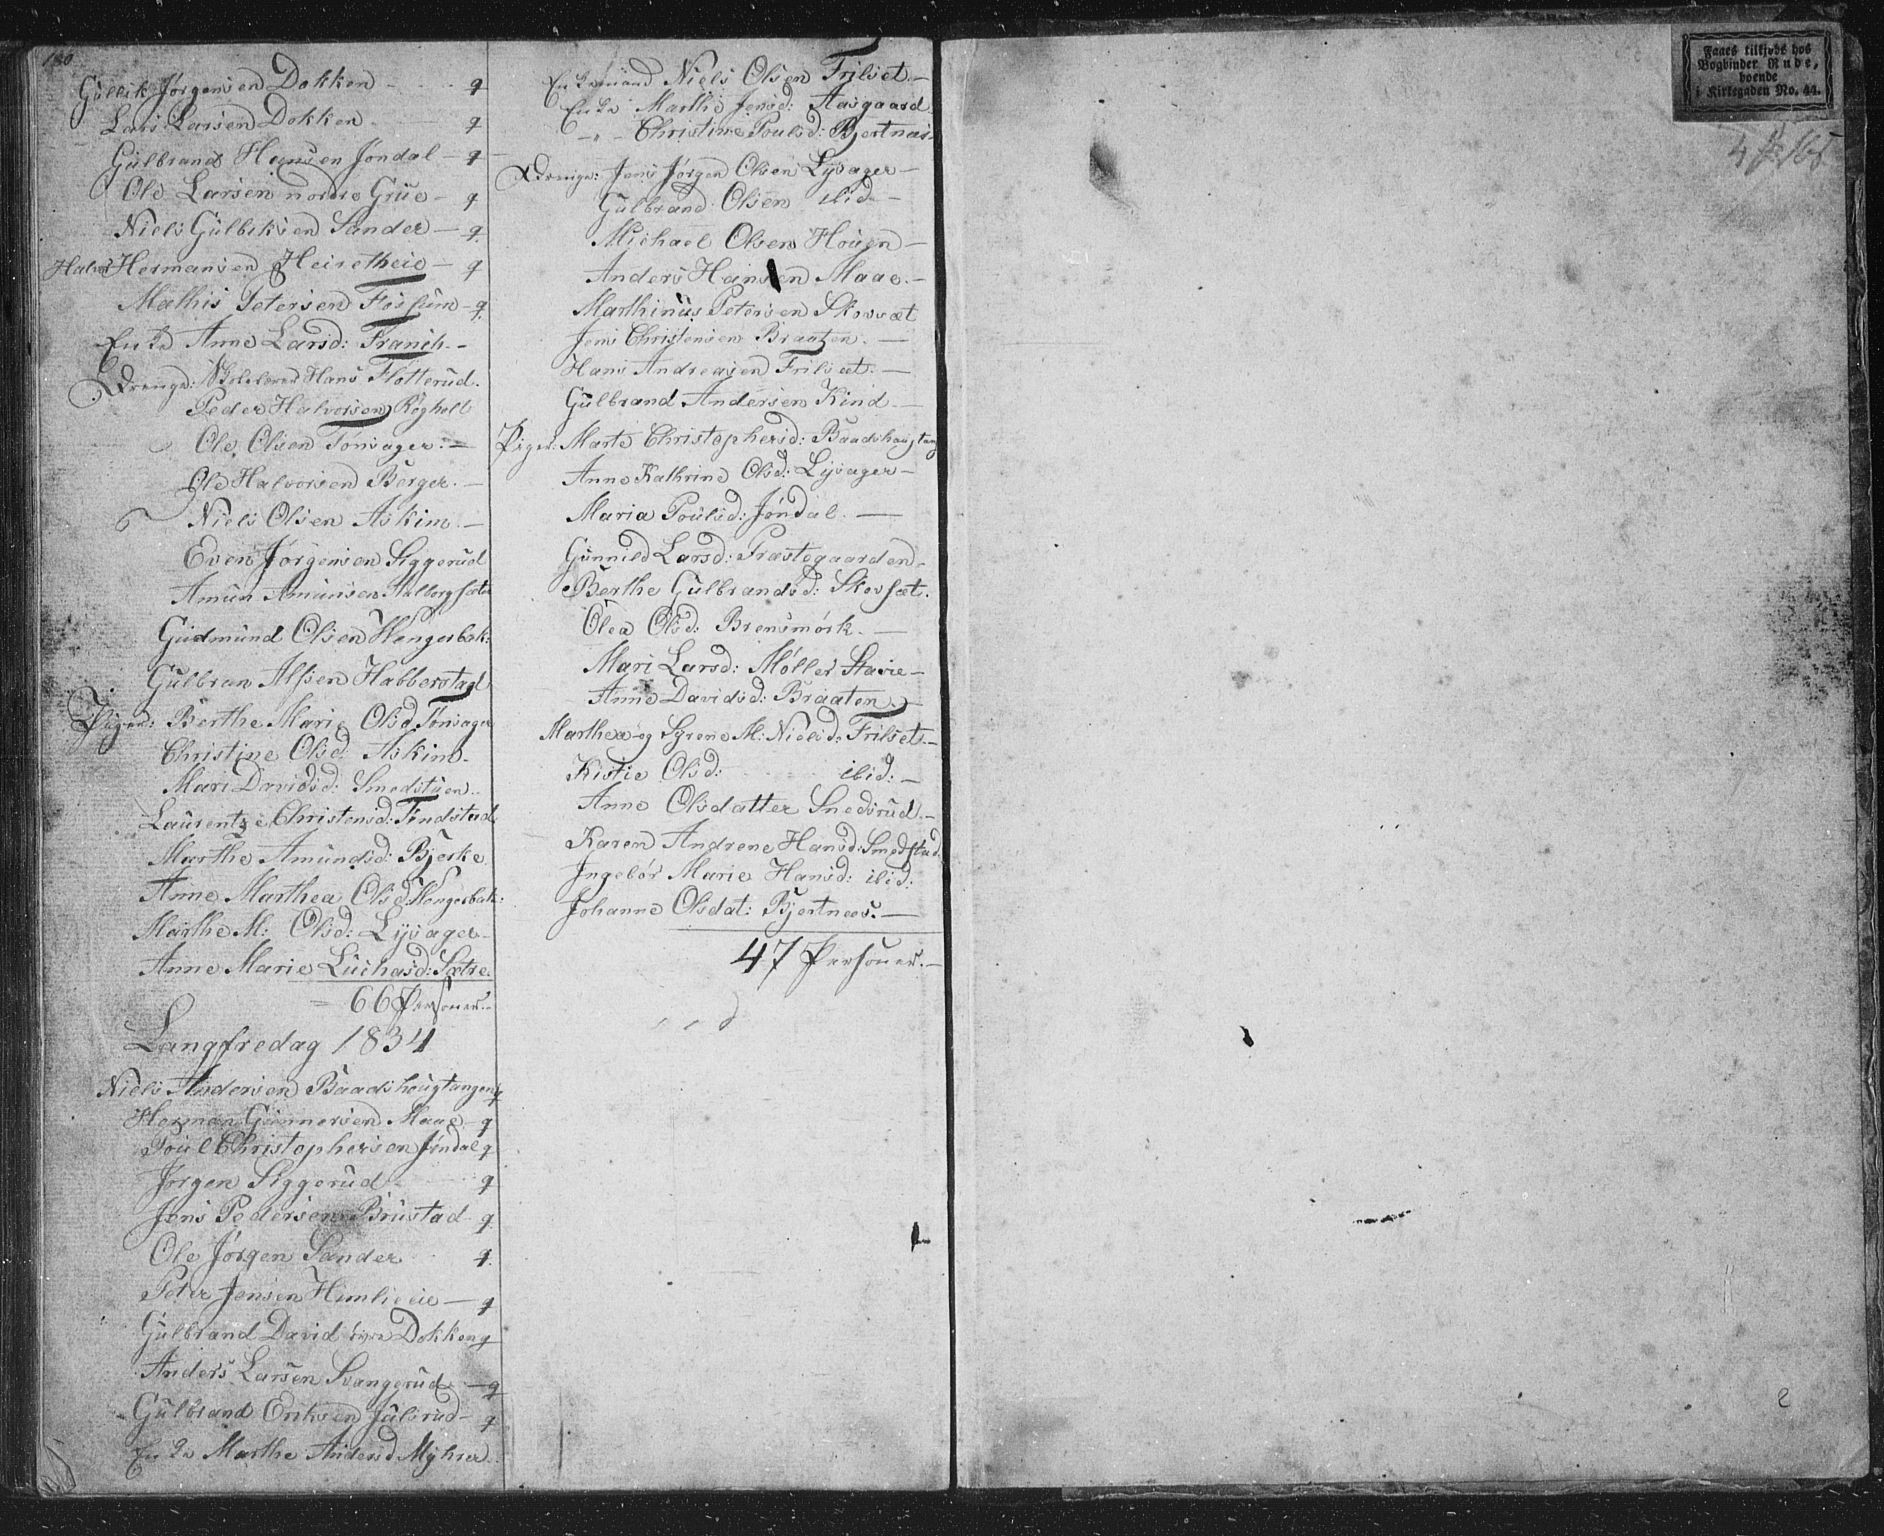 180
Gulbik Jørgensen Dokken — q
Lars Larsen Dokken — q
Gulbrand Hansen Jøndal — q
Ole Larsen nordre Grue — q
Niels Gulbiksen Sander — q
Halvor Hermansen Heiretheie — q
Mathis Petersen Fossum — q
Enke Anne Larsd: Franch. —
Drenge: Skolelærer Hans Flotterud.
Peder Halvorsen Røgholt
Ole Olsen Tonsager. —
Ole Halvorsen Berger. —
Niels Olsen Askim. —
Even Jørgensen Siggerud
Amun Amunsen
Gudmund Olsen Hengerbak:
Gulbran Alfsen Habberstad
Piger: Berthe Marie Olsd. Tonsager
Christine Olsd: Askim.
Mari Davidsd: Smedstuen.
Laurentze Christensd: Findstad
Marthe Amundsd: Bjerke
Anne Marthea Olsd: Hengerbak:
Marthe M: Olsd: Lysager
Anne Marie Luchasd: Sætre.
66 Personer.
Langfredag 1834
Niels Andersen Baadshougtangen q
Herman Gunnersen Maae q
Poul Christophersen Jøndal q
Jørgen Siggerud q
Jens Pedersen Brustad q
Ole Jørgen Sander q
Peter Jensen Himlieeie — q
Gulbrand David Dokken q
Anders Larsen Svangerud — q
Gulbrand Eriksen Julsrud — q
Enke Marthe Andersd Myhrer
Niels Olsen Frilset. —
Enke Marthe Jensd: Aasgaard
— " — Christine Poulsd: Bjertnæs
Drenge: Jens Jørgen Olsen Lysager —
Gulbrand Olsen ibid —
Michael Olsen Houen —
Anders Hansen Maae. —
Marthinus Petersen Skovsæt
Jens Christensen Braaten. —
Hans Andreasen Frilset. —
Gulbrand Andersen Kind. —
Piger: Marte Christophersd: Baadshougtang
Anne Kathrine Olsd: Lysager —
Maria Poulsd: Jøndal. —
Gunnild Larsd: Præstegaarden
Berthe Gulbrandsd: Skovsæt.
Olea Olsd: Brensmork. —
Mari Larsd: Møller Stavie —
Anne Davidsd: Braaten. —
Marthea og Syrene M: Nielsd: Frilset. —
Kistie Olsd: ibid: —
Anne Olsdatter Snedsrud. —
Karen Andrene Hansd: Smedstad.
Ingebør Marie Hansd: ibid:
Johanne Olsdat: Bjertnees. —
47 Personer. —
Faaes tilkjøbs hos
Bogbinder Rude,
boende
i Kirkegaden No. 44.